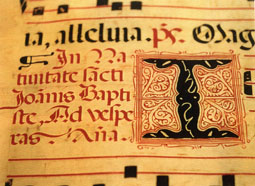 ia, alleluia. ps. Mag
In Na
tiuitate sācti
Joanis Bapti
ste, Ad vespe
ras Aña. I